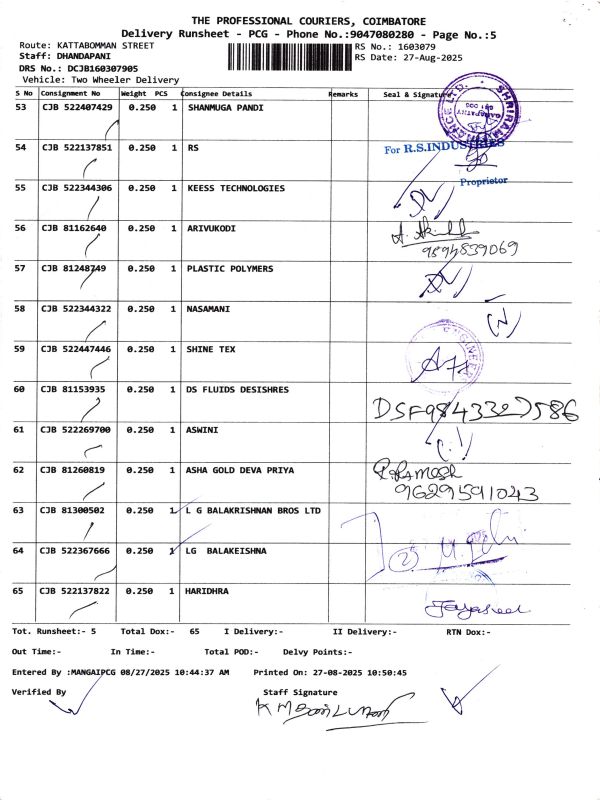 THE PROFESSIONAL COURIERS, COIMBATORE
Delivery Runsheet - PCG - Phone No.:9047080280 - Page No.:5
Route: KATTABOMMAN STREET RS No.: 1603079
Staff: DHANDAPANI RS Date: 27-Aug-2025
DRS No.: DCJB160307905
Vehicle: Two Wheeler Delivery
S No Consignment No Weight PCS Consignee Details Remarks Seal & Signature
53 CJB 522407429 0.250 1 SHANMUGA PANDI
54 CJB 522137851 0.250 1 RS For R.S.INDUSTRIES
Proprietor
55 CJB 522344306 0.250 1 KEESS TECHNOLOGIES
56 CJB 81162640 0.250 1 ARIVUKODI
9894839069
57 CJB 81248749 0.250 1 PLASTIC POLYMERS
58 CJB 522344322 0.250 1 NASAMANI
59 CJB 522447446 0.250 1 SHINE TEX
60 CJB 81153935 0.250 1 DS FLUIDS DESISHRES
61 CJB 522269700 0.250 1 ASWINI
62 CJB 81260819 0.250 1 ASHA GOLD DEVA PRIYA
9629591043
63 CJB 81300502 0.250 1 L G BALAKRISHNAN BROS LTD
64 CJB 522367666 0.250 1 LG BALAKEISHNA
65 CJB 522137822 0.250 1 HARIDHRA
Tot. Runsheet:- 5 Total Dox:- 65 I Delivery:- II Delivery:- RTN Dox:-
Out Time:- In Time:- Total POD:- Delvy Points:-
Entered By :MANGAIPCG 08/27/2025 10:44:37 AM Printed On: 27-08-2025 10:50:45
Verified By Staff Signature